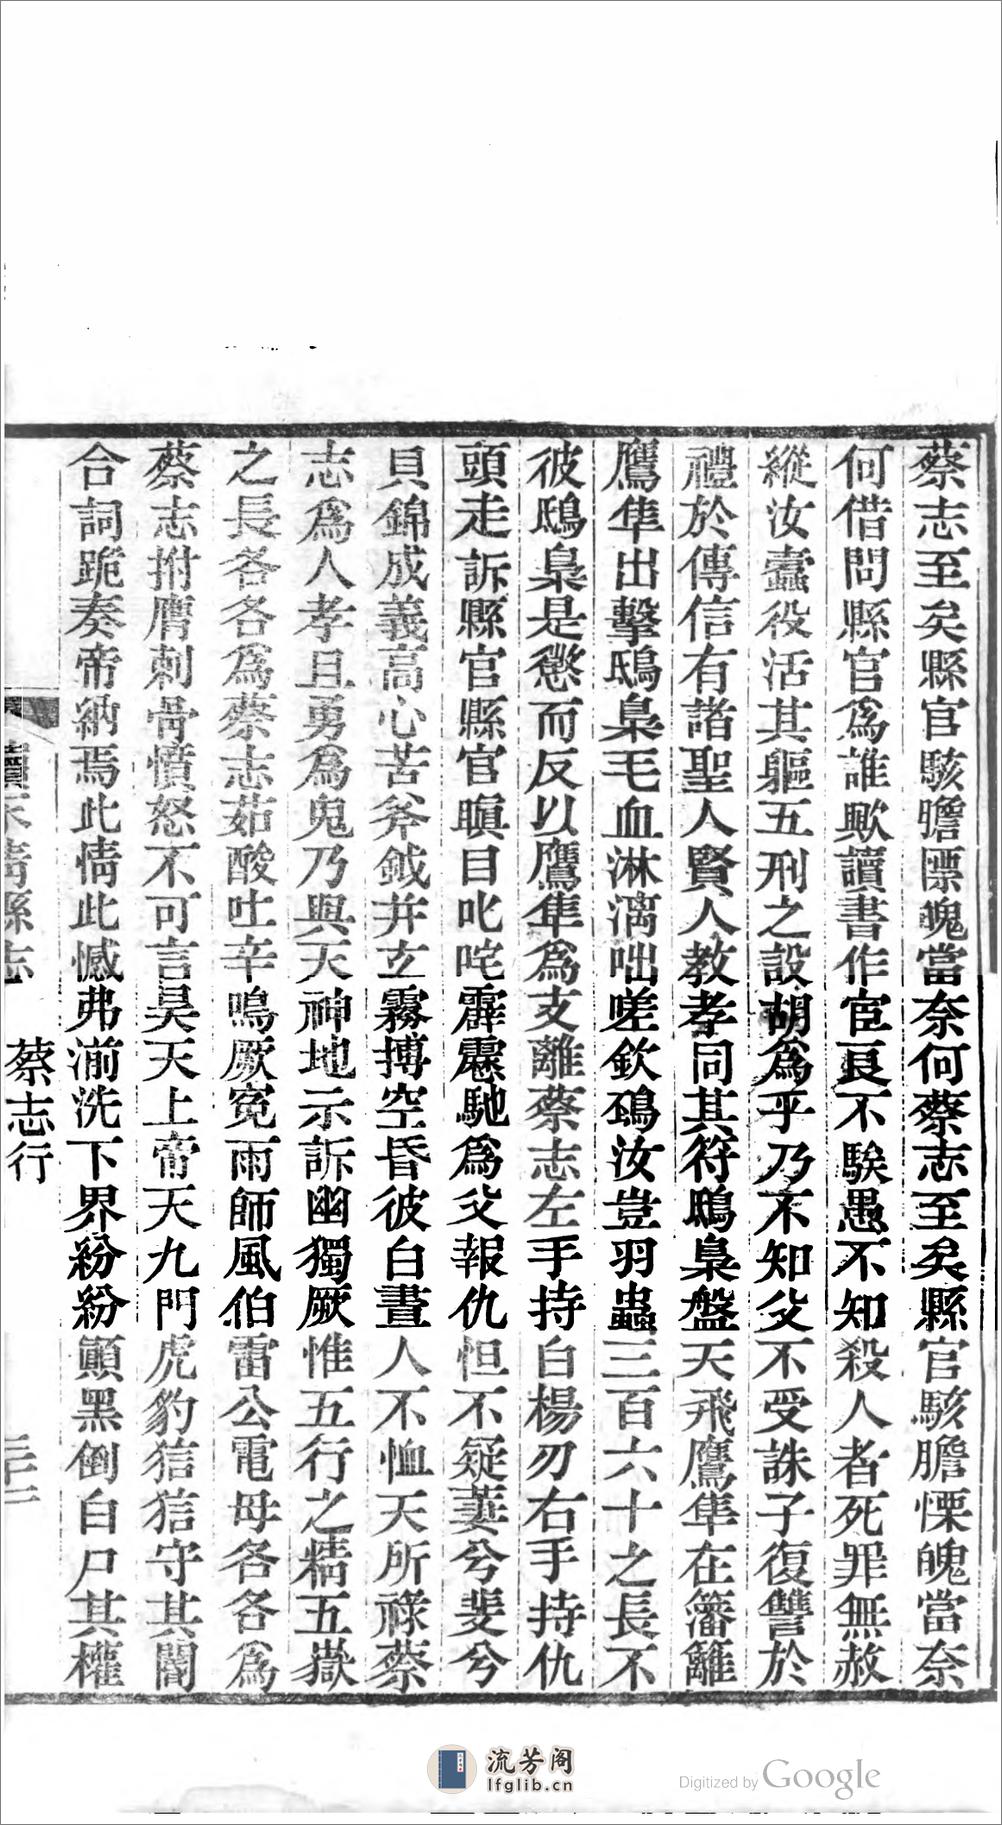 蔡志至矣縣官駭膽慓魄當奈何蔡志至矣縣官駭膽慄魄當奈
何借問縣官爲誰歟讀書作宦良不騃愚不知殺人者死罪無赦
縱汝蠹役活其軀五刑之設胡爲乎乃不知父不受誅子復讐於
禮於傳信有諸聖人賢人教孝同其符鴟梟盤天飛鷹隼在籓籬
鷹隼出擊鴟梟毛血淋漓咄嗟欽䲹汝豈羽蟲三百六十之長不
彼鴟梟是懲而反以鷹隼爲支離蔡志左手持白楊刃右手持仇
頭走訴縣官縣官瞋目叱咤霹靂馳爲父報仇怛不疑萋兮斐兮
貝錦成義高心苦斧鉞并玄霧摶空昏彼白晝人不恤天所祿蔡
志爲人孝且勇爲鬼乃與天神地示訴幽獨厥惟五行之精五嶽
之長各各爲蔡志茹酸吐辛鳴厥冤雨師風伯雷公電母各各爲
蔡志拊膺刺骨憤怒不可言昊天上帝天九門虎豹狺狺守其閽
合詞跪奏帝納焉此情此憾弗湔洗下界紛紛顚黑倒白尸其權
清縣志
蔡志行
三十二
流芳阁
lfglib.cn
Digitized by Google